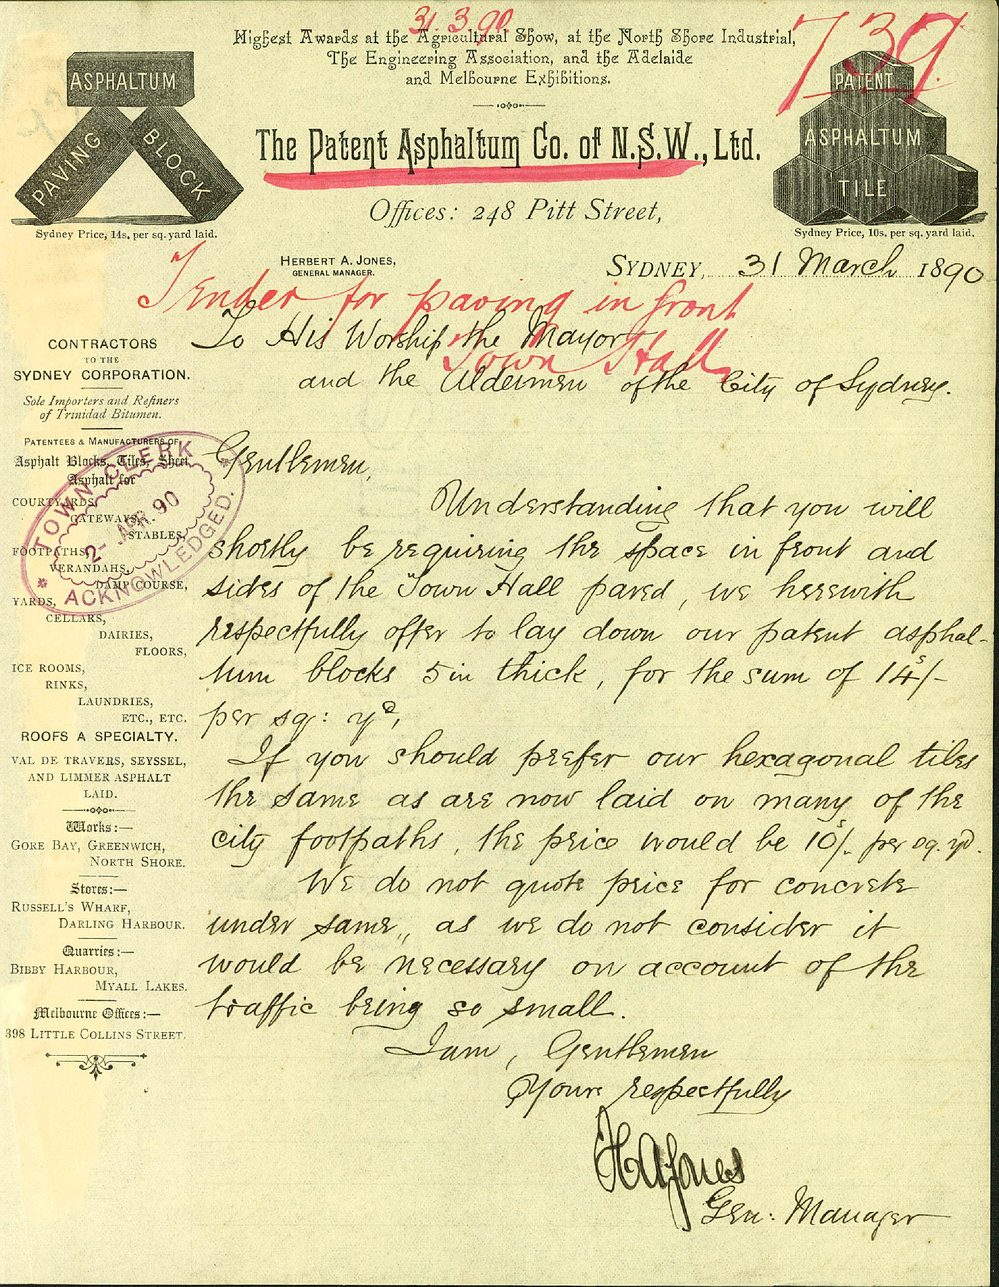 31.3.90
739
Highest Awards at the Agricultural Show, at the North Shore Industrial,
The Engineering Association, and the Adelaide
and Melbourne Exhibitions.
ASPHALTUM
PAVING
BLOCK
Sydney Price, 14s. per sq. yard laid.
The Patent Asphaltum Co. of N.S.W., Ltd.
Offices: 248 Pitt Street,
PATENT
ASPHALTUM
TILE
Sydney Price, 10s. per sq. yard laid.
HERBERT A. JONES,
GENERAL MANAGER.
SYDNEY, 31 March 1890
Tender for paving in front
Town Hall
To His Worship the Mayor
and the Aldermen of the City of Sydney.
CONTRACTORS
TO THE
SYDNEY CORPORATION.
Sole Importers and Refiners
of Trinidad Bitumen.
PATENTEES & MANUFACTURERS OF
Asphalt Blocks, Tiles, Sheet
Asphalt for
COURTYARDS,
GATEWAYS,
STABLES,
FOOTPATHS,
VERANDAHS,
DAMP COURSE,
YARDS,
CELLARS,
DAIRIES,
FLOORS,
ICE ROOMS,
RINKS,
LAUNDRIES,
ETC., ETC.
ROOFS A SPECIALTY.
VAL DE TRAVERS, SEYSSEL,
AND LIMMER ASPHALT
LAID.
Works:—
GORE BAY, GREENWICH,
NORTH SHORE.
Stores:—
RUSSELL'S WHARF,
DARLING HARBOUR.
Quarries:—
BIBBY HARBOUR,
MYALL LAKES.
Melbourne Offices:—
398 LITTLE COLLINS STREET.
TOWN CLERK
2- APR. 90
ACKNOWLEDGED.
Gentlemen,
Understanding that you will
shortly be requiring the space in front and
sides of the Town Hall paved, we herewith
respectfully offer to lay down our patent asphal-
tum blocks 5 in thick, for the sum of 14s/-
per sq: yd,
If you should prefer our hexagonal tiles
the same as are now laid on many of the
city footpaths, the price would be 10s/- per sq. yd.
We do not quote price for concrete
under same, as we do not consider it
would be necessary on account of the
traffic being so small.
I am, Gentlemen
Yours respectfully
H A Jones
Gen: Manager